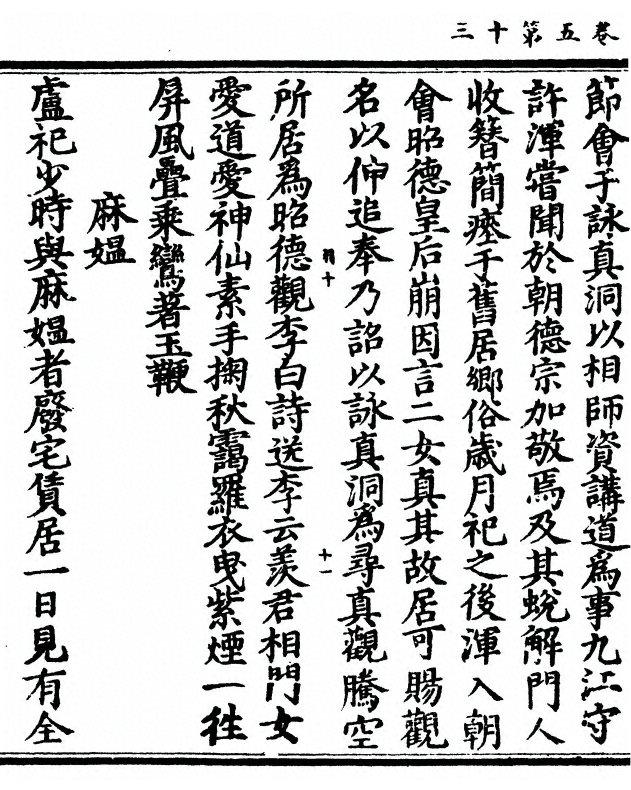 卷五第十三
節會于詠真洞以相師資講道爲事九江守
許渾嘗聞於朝德宗加敬焉及其蛻解門人
收簪簡瘞于舊居鄉俗歲月祀之後渾入朝
會昭德皇后崩因言二女真其故居可賜觀
名以伸追奉乃詔以詠真洞爲尋真觀騰空
所居爲昭德觀李白詩送李云羨君相門女
愛道愛神仙素手掬秋靄羅衣曳紫煙一往
屏風疊乘鸞著玉鞭
麻媪
盧祀少時與麻媪者廢宅賃居一日見有全